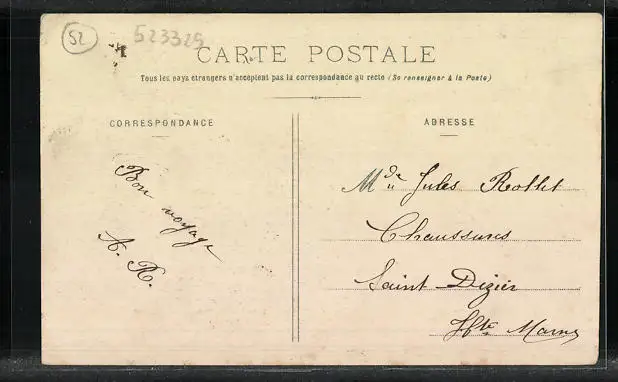 52
523325
CARTE POSTALE
Tous les pays étrangers n'acceptent pas la correspondance au recto (Se renseigner à la Poste)
CORRESPONDANCE
Bon voyage
A. R.
ADRESSE
Mde Jules Rollet
Chaussures
Saint Dizier
Hte Marne